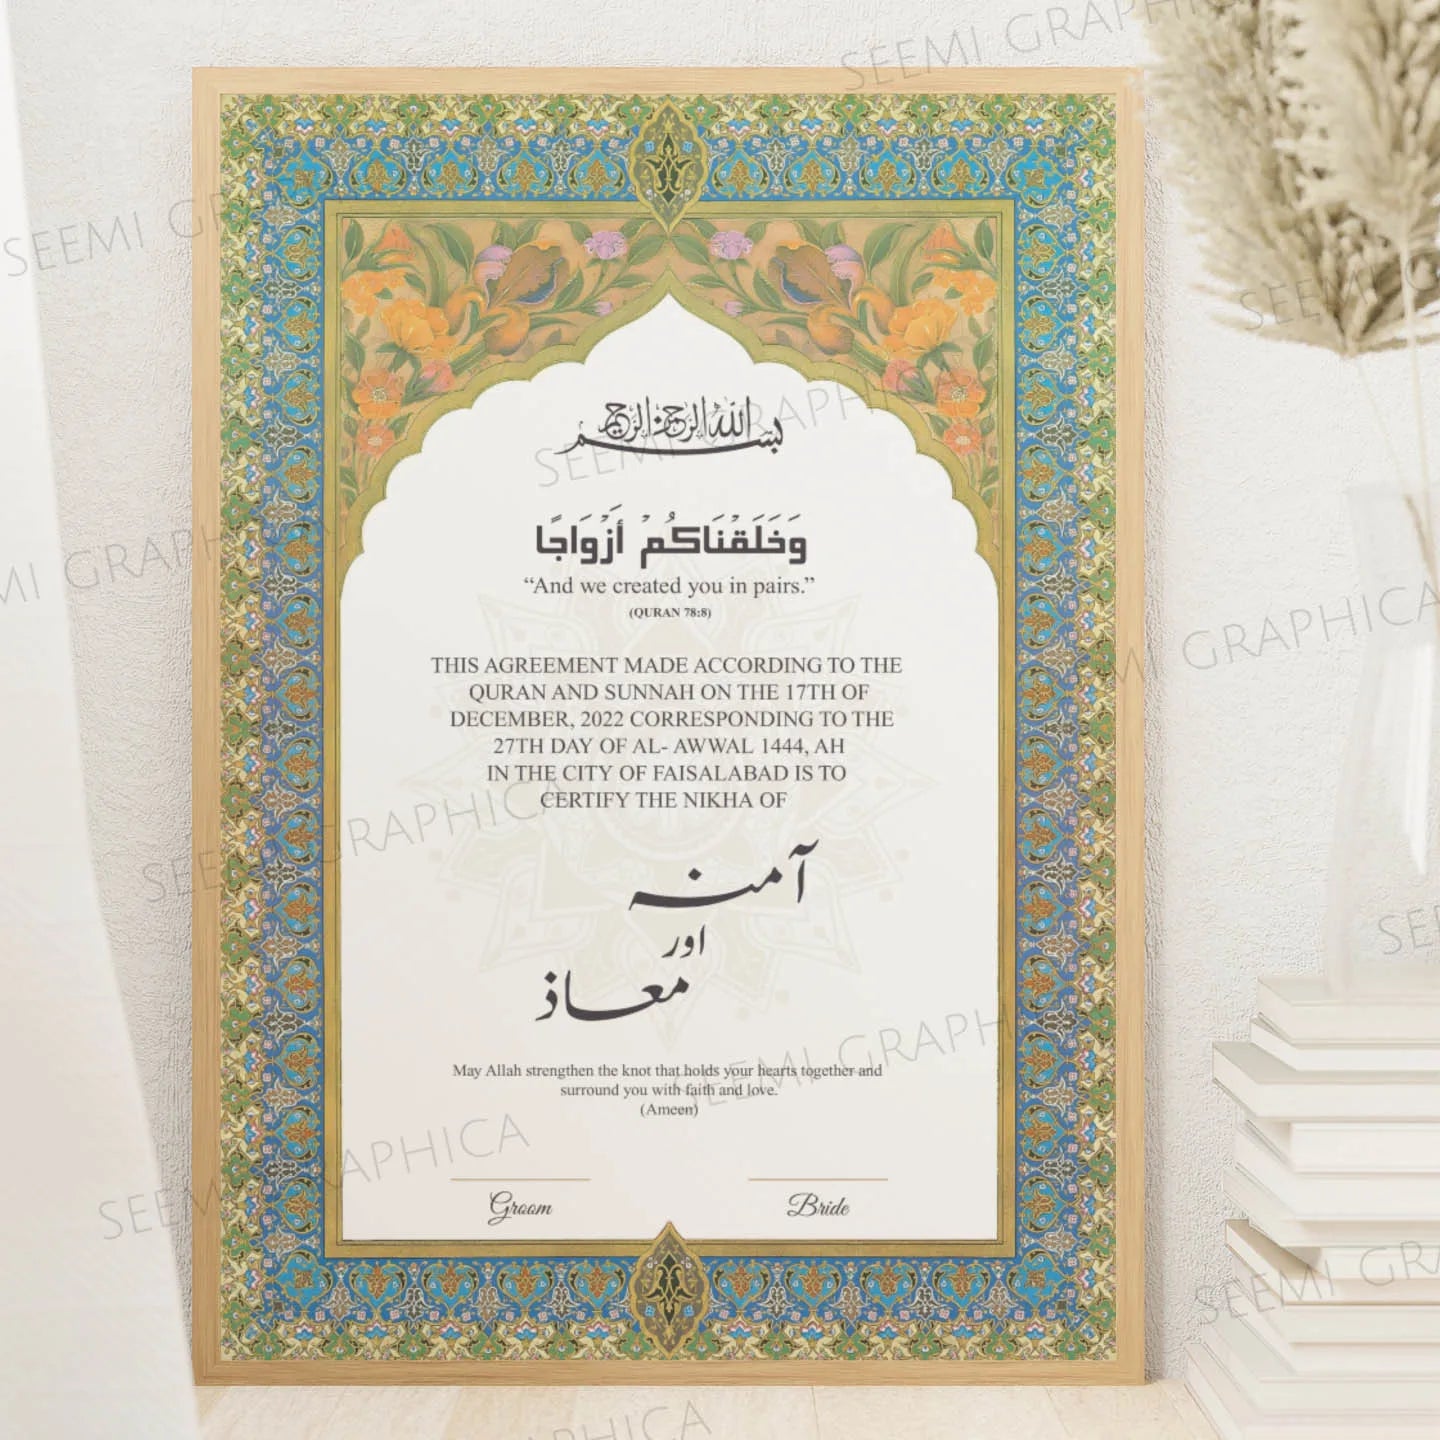 بسم الله الرحمن الرحيم
وَخَلَقْنَاكُمْ أَزْوَاجًا
“And we created you in pairs.”
(QURAN 78:8)
THIS AGREEMENT MADE ACCORDING TO THE
QURAN AND SUNNAH ON THE 17TH OF
DECEMBER, 2022 CORRESPONDING TO THE
27TH DAY OF AL- AWWAL 1444, AH
IN THE CITY OF FAISALABAD IS TO
CERTIFY THE NIKHA OF
آمنہ
اور
معاذ
May Allah strengthen the knot that holds your hearts together and
surround you with faith and love.
(Ameen)
Groom
Bride
SEEMI GRAPHICA